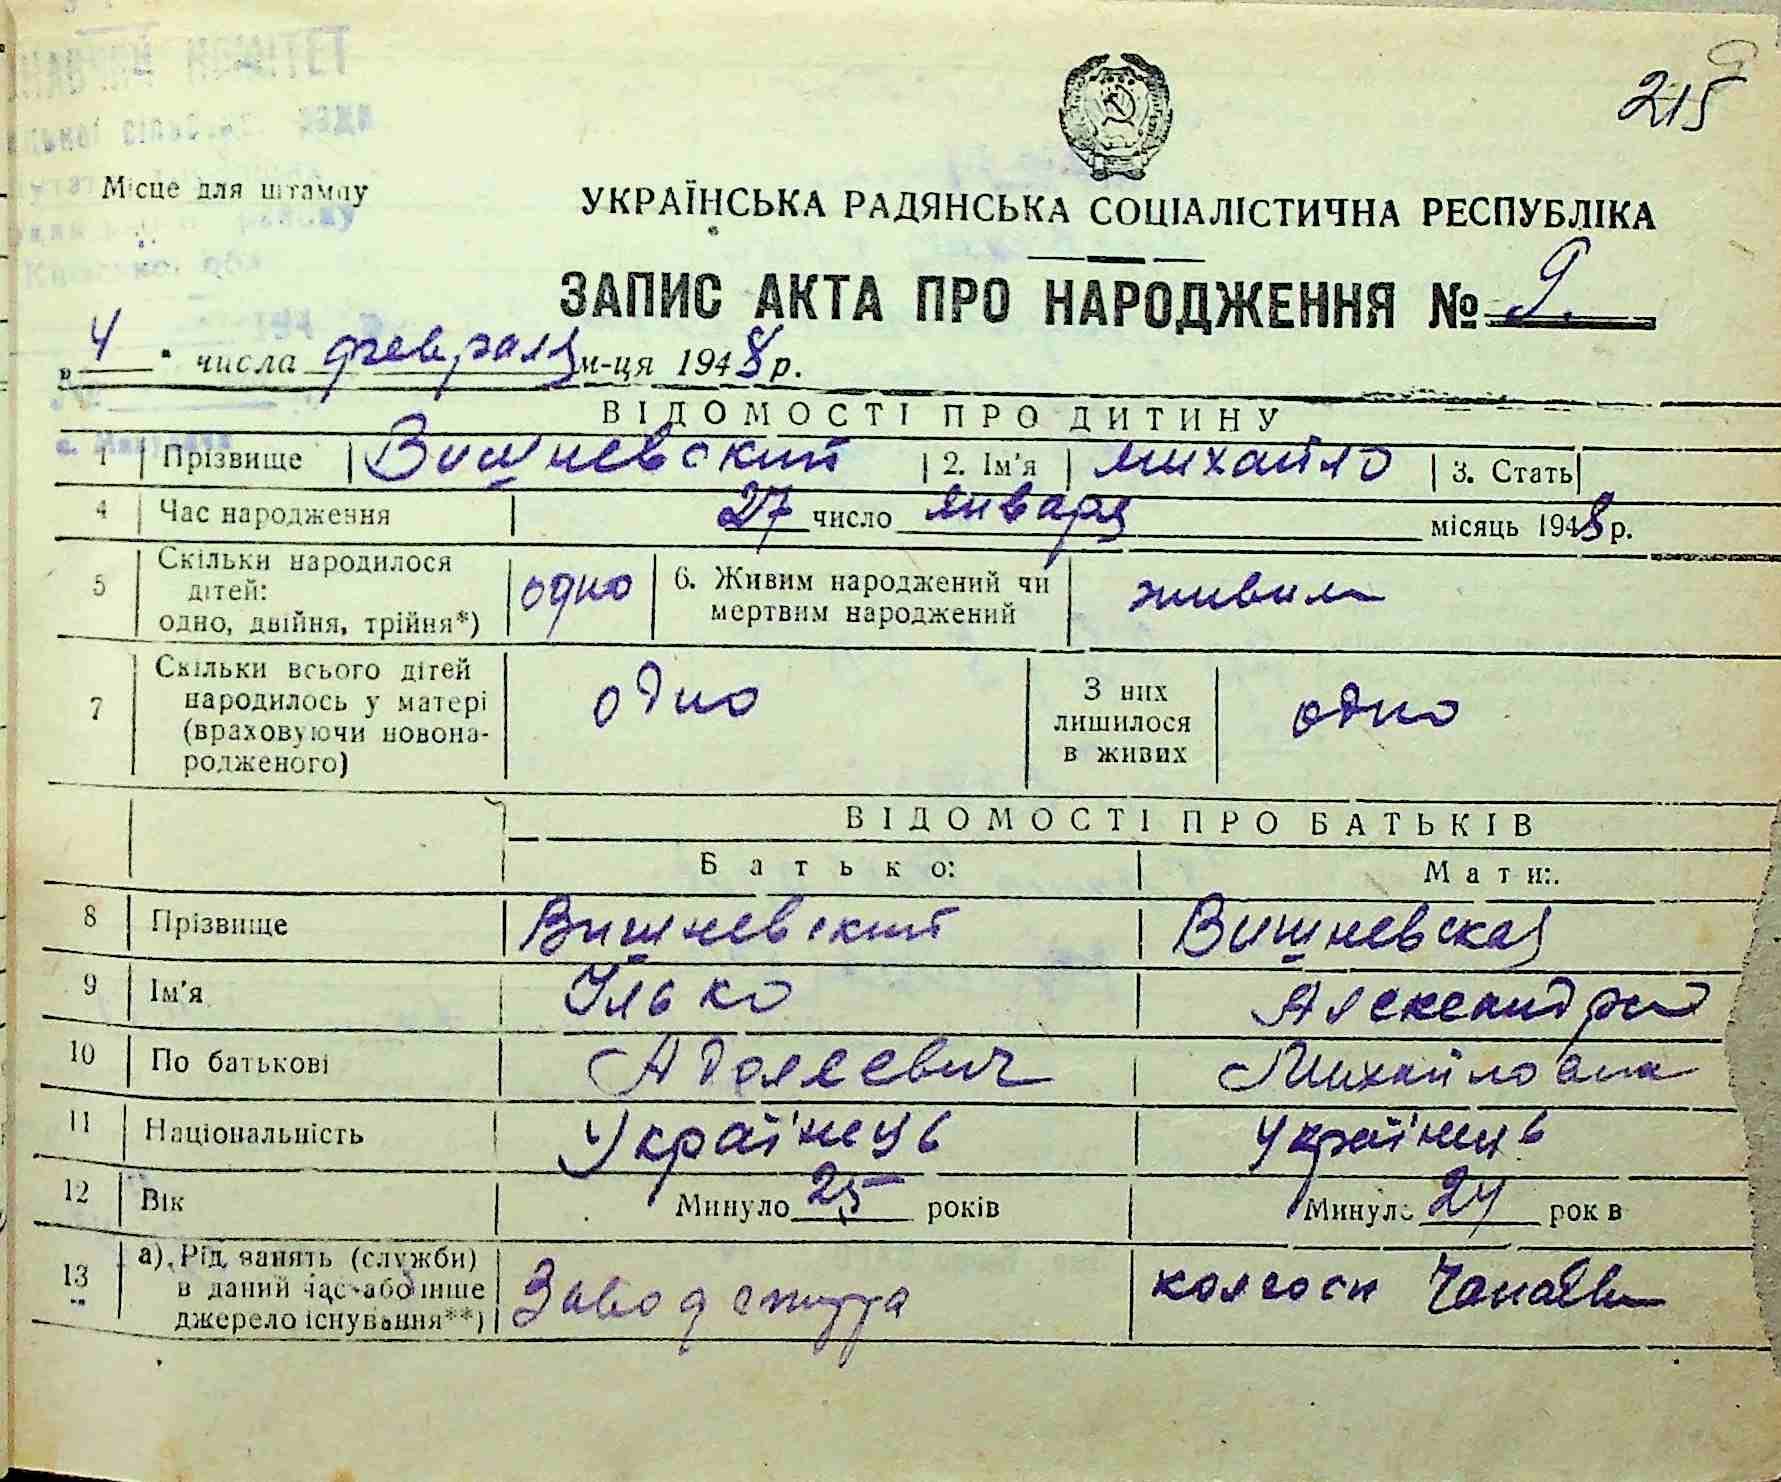 215
КОМІТЕТ
Місце для штампу
УКРАЇНСЬКА РАДЯНСЬКА СОЦІАЛІСТИЧНА РЕСПУБЛІКА
ЗАПИС АКТА ПРО НАРОДЖЕННЯ № 9.
„ 4 " числа февраля м-ця 1948 р.
ВІДОМОСТІ ПРО ДИТИНУ
1 Прізвище Вишневский 2. Ім'я Михайло 3. Стать
4 Час народження 27 число января місяць 1948 р.
5 Скільки народилося дітей: одно, двійня, трійня*) одно 6. Живим народжений чи мертвим народжений живим
7 Скільки всього дітей народилось у матері (враховуючи новонародженого) одно З них лишилося в живих одно
ВІДОМОСТІ ПРО БАТЬКІВ
Батько: Мати:
8 Прізвище Вишневский Вишневская
9 Ім'я Улько Александра
10 По батькові Михайловна
11 Національність Україінець Україінець
12 Вік Минуло 25 років Минуло 24 рок в
13 а) Рід занять (служби) в даний час або інше джерело існування**) Завод колгосп